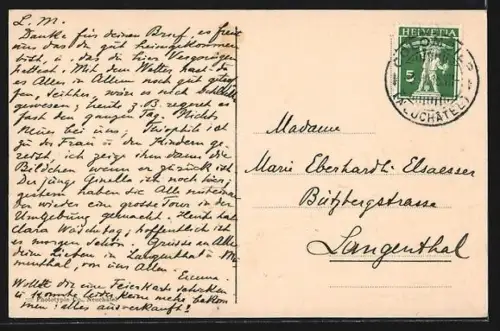 L. M.
Danke für deinen Brief, es freut
uns dass du gut heimgekommen
bist, u. dass du hier Vergnügen
hattest. Mit dem Wetter hast du
es Allem in Allem noch gut getrof-
fen. Seither, wäre es noch
gewesen; heute z. B. regnet es
fast den ganzen Tag. Nichts
Neues bei uns; Theophil ist
zu der Frau u. den Kindern ge-
reist, ich zeige ihm dann die
Bildchen wenn er zurück ist.
Der junge ist noch hier,
gestern haben die Alle miteinan-
der wieder eine grosse Tour in der
Umgebung gemacht. Heute hat
Clara Waschtag, hoffentlich ist
es morgen schön. Grüsse an Alle
deine Lieben in Langenthal u.
menthal, von uns Allen.
Emma.
Wollte dir eine Feierkarte schicken
u. konnte leider keine mehr bekom-
men! alles ausverkauft!
Phototypie Co., Neuchâtel
HELVETIA
5
(NEUCHÂTEL)
Madame
Marie Eberhardt-Elsaesser
Bützbergstrasse
Langenthal